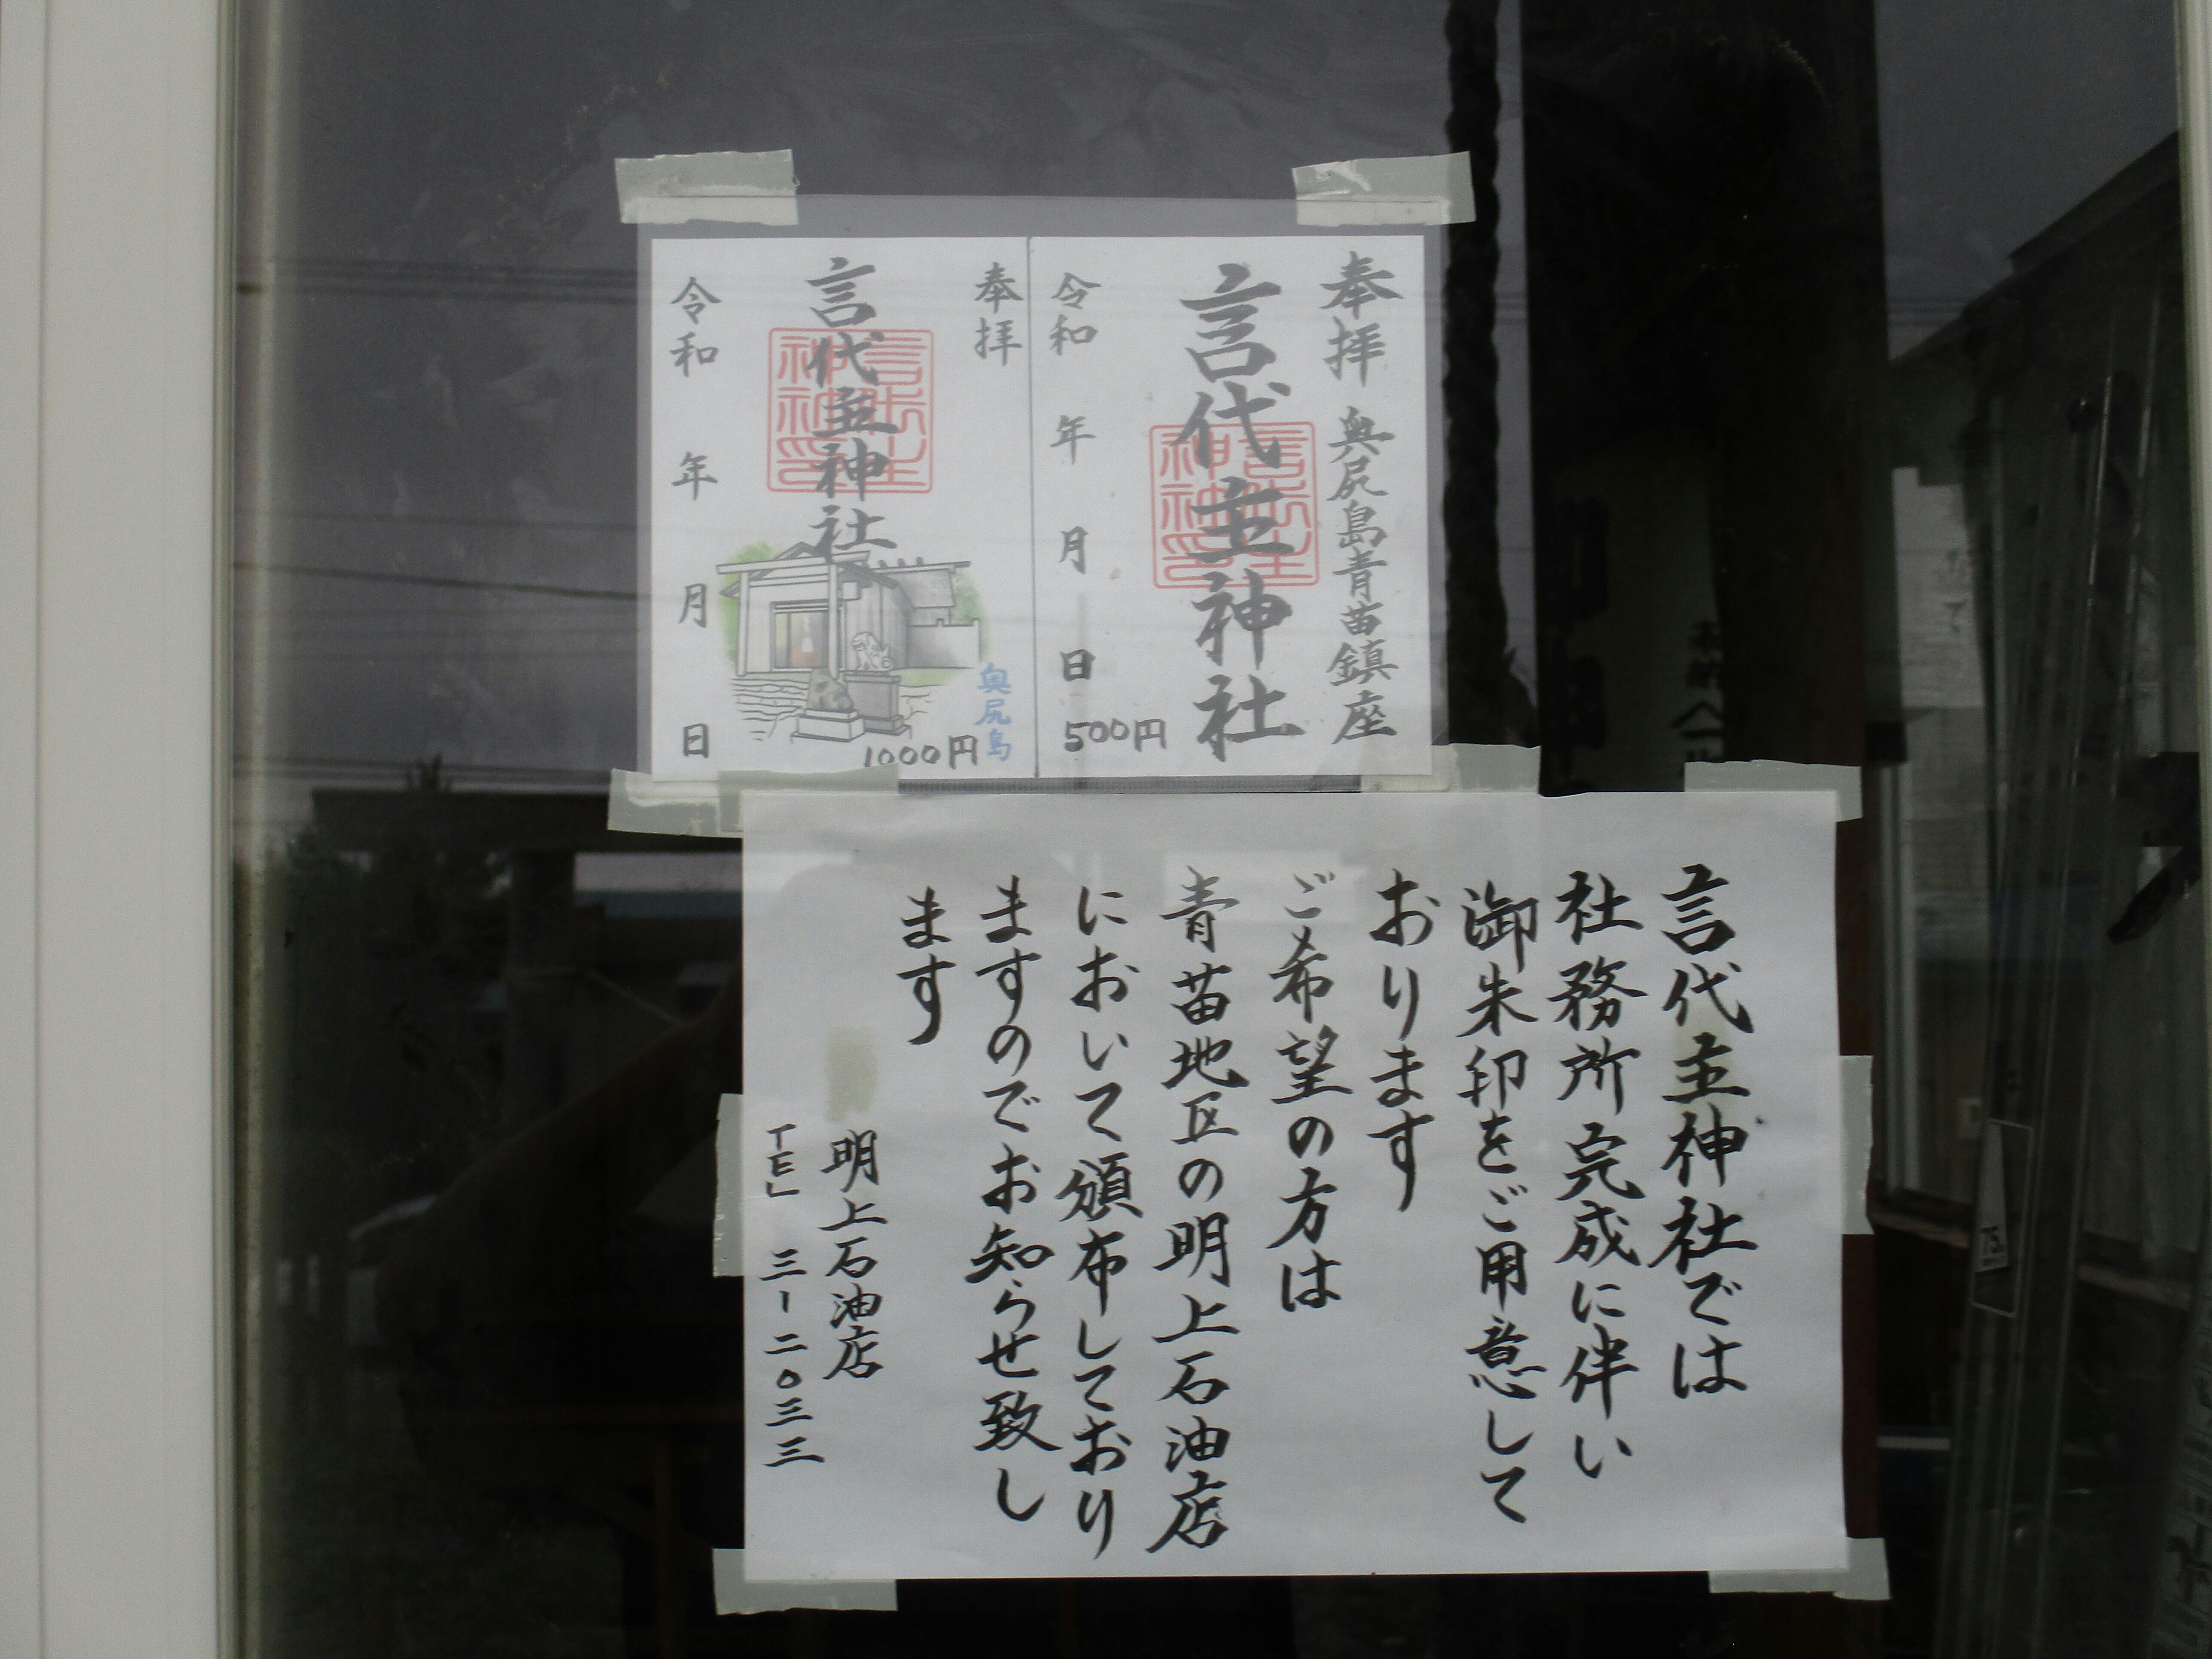 奉拝 奥尻島青苗鎮座
言代主神社
令和 年 月 日
500円
奉拝
言代主神社
令和 年 月 日
奥尻島
1000円
言代主神社では
社務所完成に伴い
御朱印をご用意して
おります
ご希望の方は
青苗地区の明上石油店
において頒布しており
ますのでお知らせ致し
ます
明上石油店
TEL 三-二〇三三